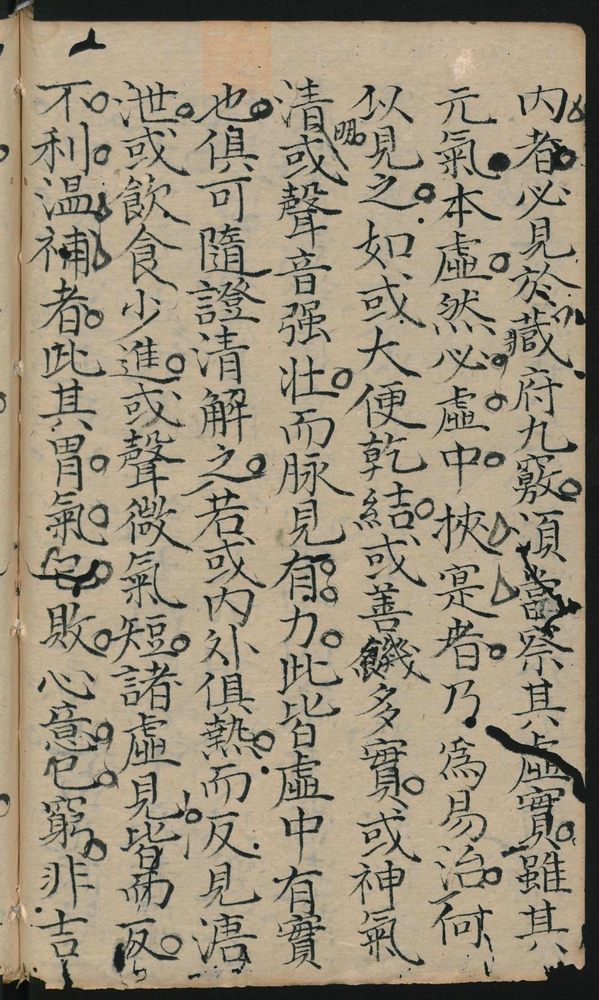 内者必見於藏府九竅湏當察其虛實雖其
元氣本虛然必虛中挾寔者乃爲易治何
似見之如或大便乾結或善饑多實或神氣
清明或聲音强壮而脉見有力此皆虛中有實
也俱可隨證清解之若或内外俱熱而反見溏
泄或飲食少進或聲微氣短諸虛見皆而反
不利温補者此其胃氣已敗心意已窮非吉